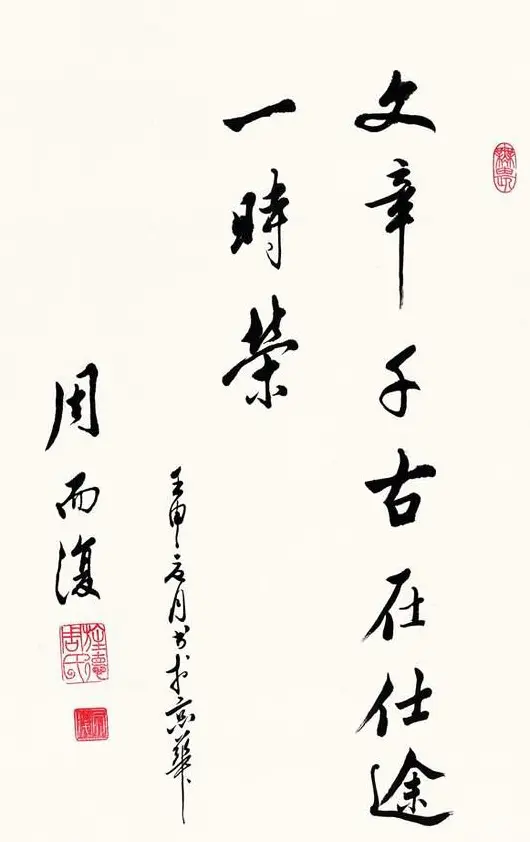 文章千古在仕途
一時榮
壬申元月书於京華
周而復